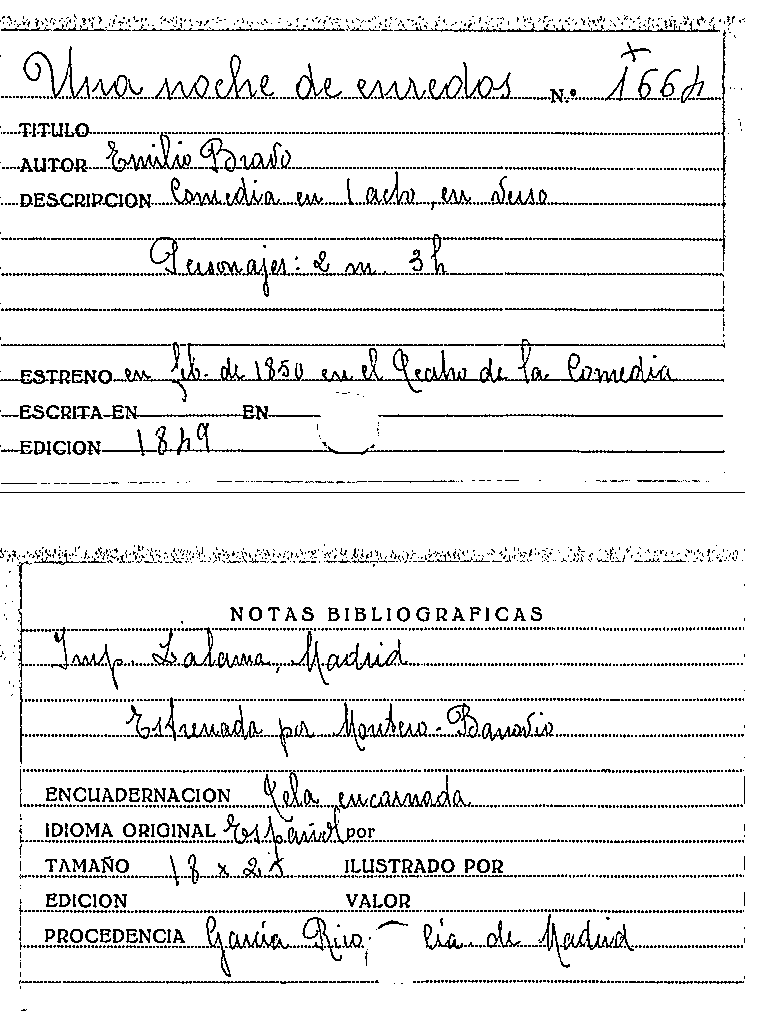 Una noche de enredos N.º 1664
TITULO
AUTOR Emilio Bravo
DESCRIPCION Comedia en 1 acto, en verso
Personajes: 2 m. 3 h
ESTRENO en feb. de 1850 en el Teatro de la Comedia
ESCRITA EN EN
EDICION 1849
NOTAS BIBLIOGRAFICAS
Imp. Lalama, Madrid
Estrenada por Montero-Banovio
ENCUADERNACION Tela encarnada
IDIOMA ORIGINAL Español por
TAMAÑO 18 x 25 ILUSTRADO POR
EDICION VALOR
PROCEDENCIA García Rico, Cía. de Madrid